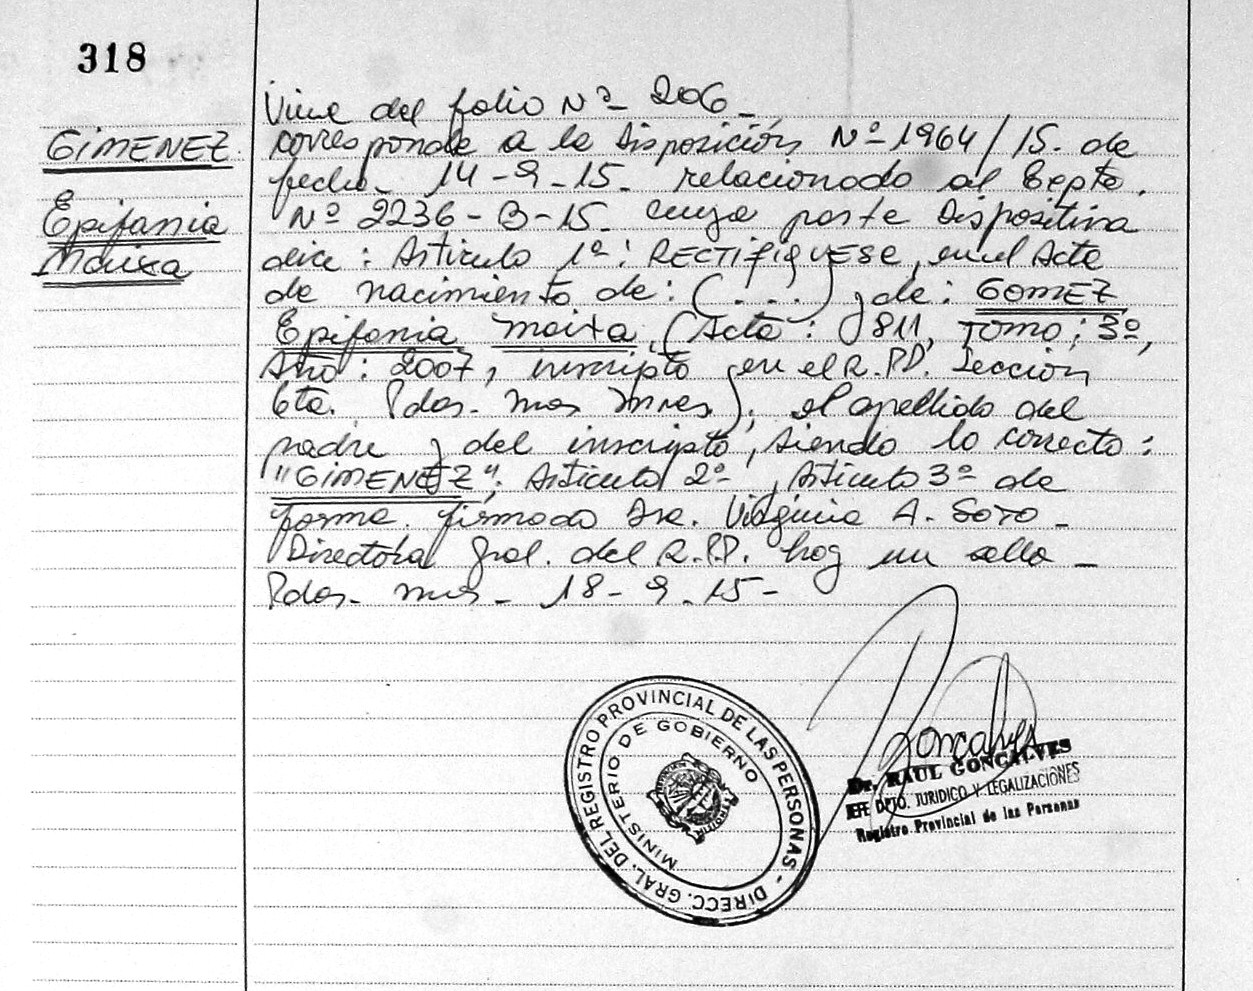 318
GIMENEZ
Epifania
Maixa
Viene del folio Nº 206 -
corresponde a la disposición Nº 1964/15. de
fecha - 14-9-15. relacionado al Expte.
Nº 2236-B-15. cuya parte dispositiva
dice: Articulo 1º: RECTIFIQUESE, en el Acta
de nacimiento de: (...) y de: GOMEZ
Epifania Maixa, (Acta: 811, Tomo: 3º,
Año: 2007, inscripto en el R.P.P. Sección
6ta. Pdas. Mnes Mnes.); el apellido del
padre y del inscripto, siendo lo correcto:
"GIMENEZ"; Articulo 2º, Articulo 3º de
forma. firmado Dra. Virginia A. Soto -
Directora Gral. del R.P.P. hay un sello -
Pdas. Mnes - 18-9-15-
DIRECC. GRAL. DEL REGISTRO PROVINCIAL DE LAS PERSONAS -
MINISTERIO DE GOBIERNO
Goncalves
Dr. RAUL GONCALVES
JEFE DPTO. JURIDICO Y LEGALIZACIONES
Registro Provincial de las Personas